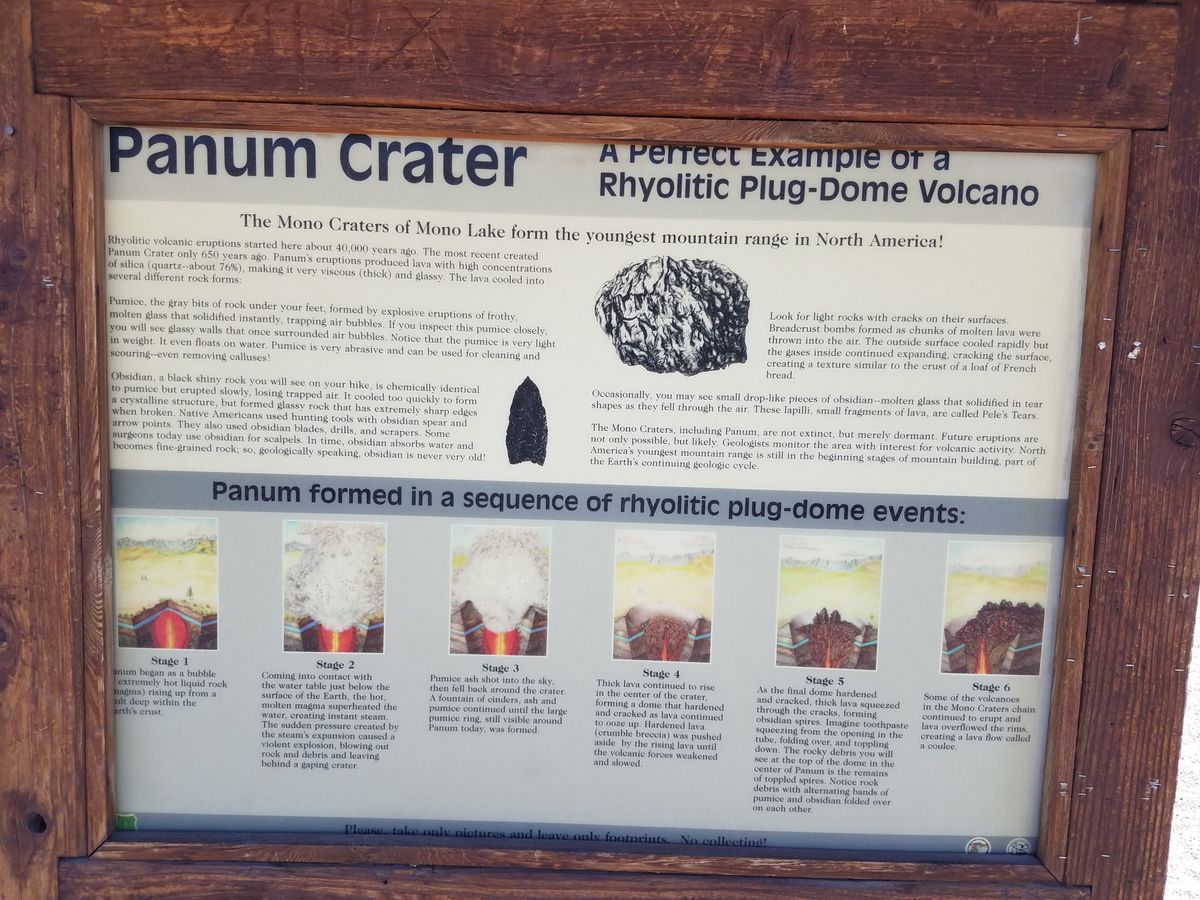 Panum Crater
A Perfect Example of a
Rhyolitic Plug-Dome Volcano
The Mono Craters of Mono Lake form the youngest mountain range in North America!
Rhyolitic volcanic eruptions started here about 40,000 years ago. The most recent created
Panum Crater only 650 years ago. Panum's eruptions produced lava with high concentrations
of silica (quartz--about 76%), making it very viscous (thick) and glassy. The lava cooled into
several different rock forms:
Pumice, the gray bits of rock under your feet, formed by explosive eruptions of frothy,
molten glass that solidified instantly, trapping air bubbles. If you inspect this pumice closely,
you will see glassy walls that once surrounded air bubbles. Notice that the pumice is very light
in weight. It even floats on water. Pumice is very abrasive and can be used for cleaning and
scouring--even removing calluses!
Obsidian, a black shiny rock you will see on your hike, is chemically identical
to pumice but erupted slowly, losing trapped air. It cooled too quickly to form
a crystalline structure, but formed glassy rock that has extremely sharp edges
when broken. Native Americans used hunting tools with obsidian spear and
arrow points. They also used obsidian blades, drills, and scrapers. Some
surgeons today use obsidian for scalpels. In time, obsidian absorbs water and
becomes fine-grained rock; so, geologically speaking, obsidian is never very old!
Look for light rocks with cracks on their surfaces.
Breadcrust bombs formed as chunks of molten lava were
thrown into the air. The outside surface cooled rapidly but
the gases inside continued expanding, cracking the surface,
creating a texture similar to the crust of a loaf of French
bread.
Occasionally, you may see small drop-like pieces of obsidian--molten glass that solidified in tear
shapes as they fell through the air. These lapilli, small fragments of lava, are called Pele's Tears.
The Mono Craters, including Panum, are not extinct, but merely dormant. Future eruptions are
not only possible, but likely. Geologists monitor the area with interest for volcanic activity. North
America's youngest mountain range is still in the beginning stages of mountain building, part of
the Earth's continuing geologic cycle.
Panum formed in a sequence of rhyolitic plug-dome events:
Stage 1
anum began as a bubble
extremely hot liquid rock
magma) rising up from a
ault deep within the
arth's crust.
Stage 2
Coming into contact with
the water table just below the
surface of the Earth, the hot,
molten magma superheated the
water, creating instant steam.
The sudden pressure created by
the steam's expansion caused a
violent explosion, blowing out
rock and debris and leaving
behind a gaping crater.
Stage 3
Pumice ash shot into the sky,
then fell back around the crater.
A fountain of cinders, ash and
pumice continued until the large
pumice ring, still visible around
Panum today, was formed.
Stage 4
Thick lava continued to rise
in the center of the crater,
forming a dome that hardened
and cracked as lava continued
to ooze up. Hardened lava
(crumble breccia) was pushed
aside by the rising lava until
the volcanic forces weakened
and slowed.
Stage 5
As the final dome hardened
and cracked, thick lava squeezed
through the cracks, forming
obsidian spires. Imagine toothpaste
squeezing from the opening in the
tube, folding over, and toppling
down. The rocky debris you will
see at the top of the dome in the
center of Panum is the remains
of toppled spires. Notice rock
debris with alternating bands of
pumice and obsidian folded over
on each other.
Stage 6
Some of the volcanoes
in the Mono Craters chain
continued to erupt and
lava overflowed the rims,
creating a lava flow called
a coulee.
Please, take only pictures and leave only footprints. No collecting!